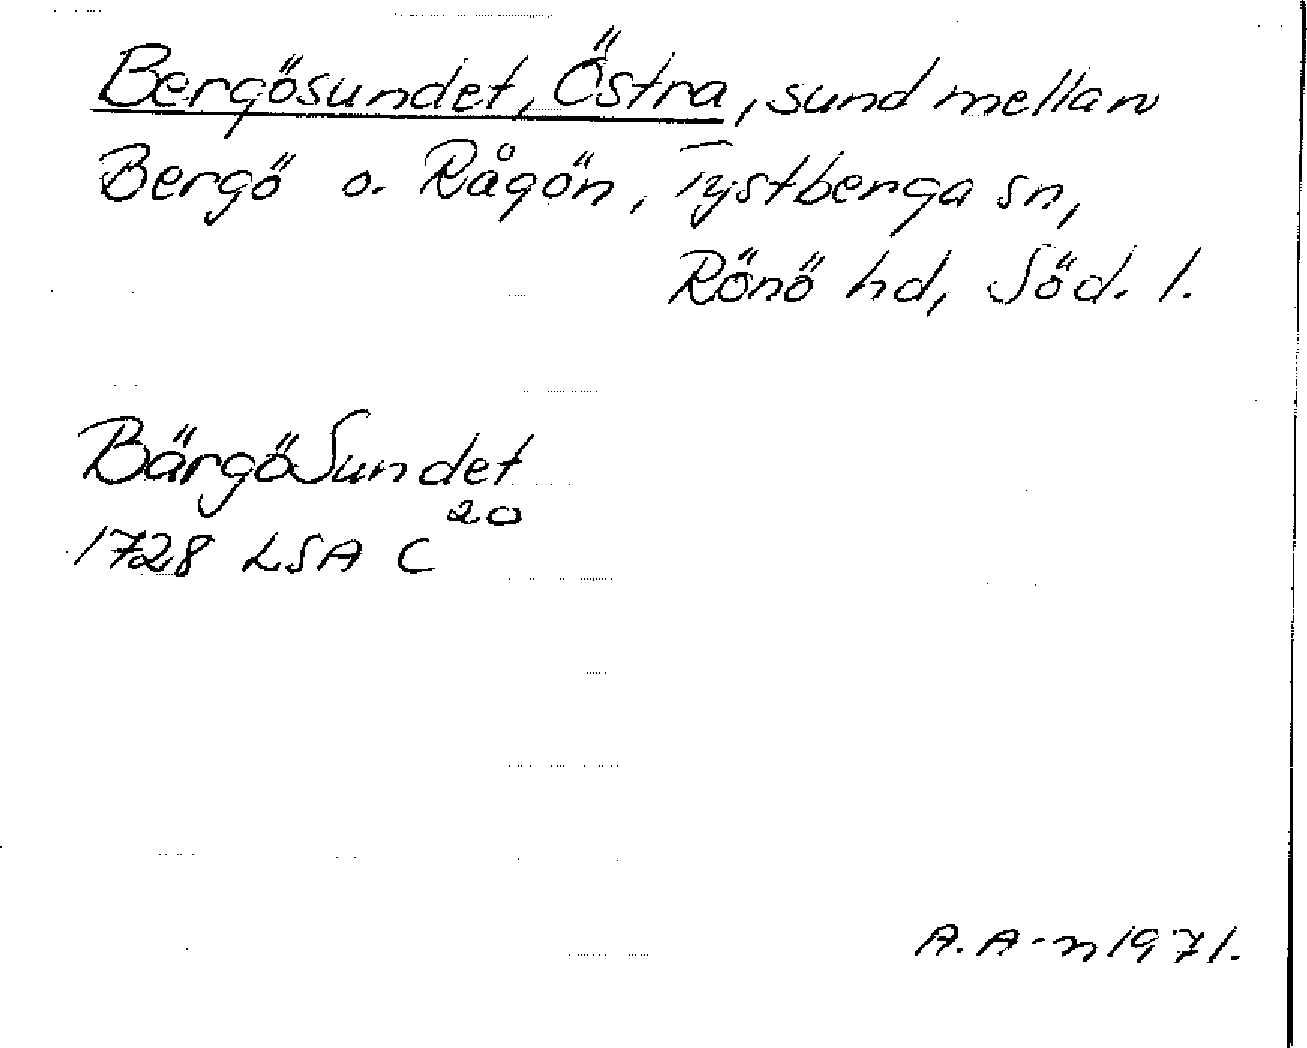 Bergösundet, Östra, sund mellan
Bergö o. Rågön, Tystberga sn,
Rönö hd, Söd. l.
BärgöSundet
1728 LSA C²⁰
A. A-n 1971.